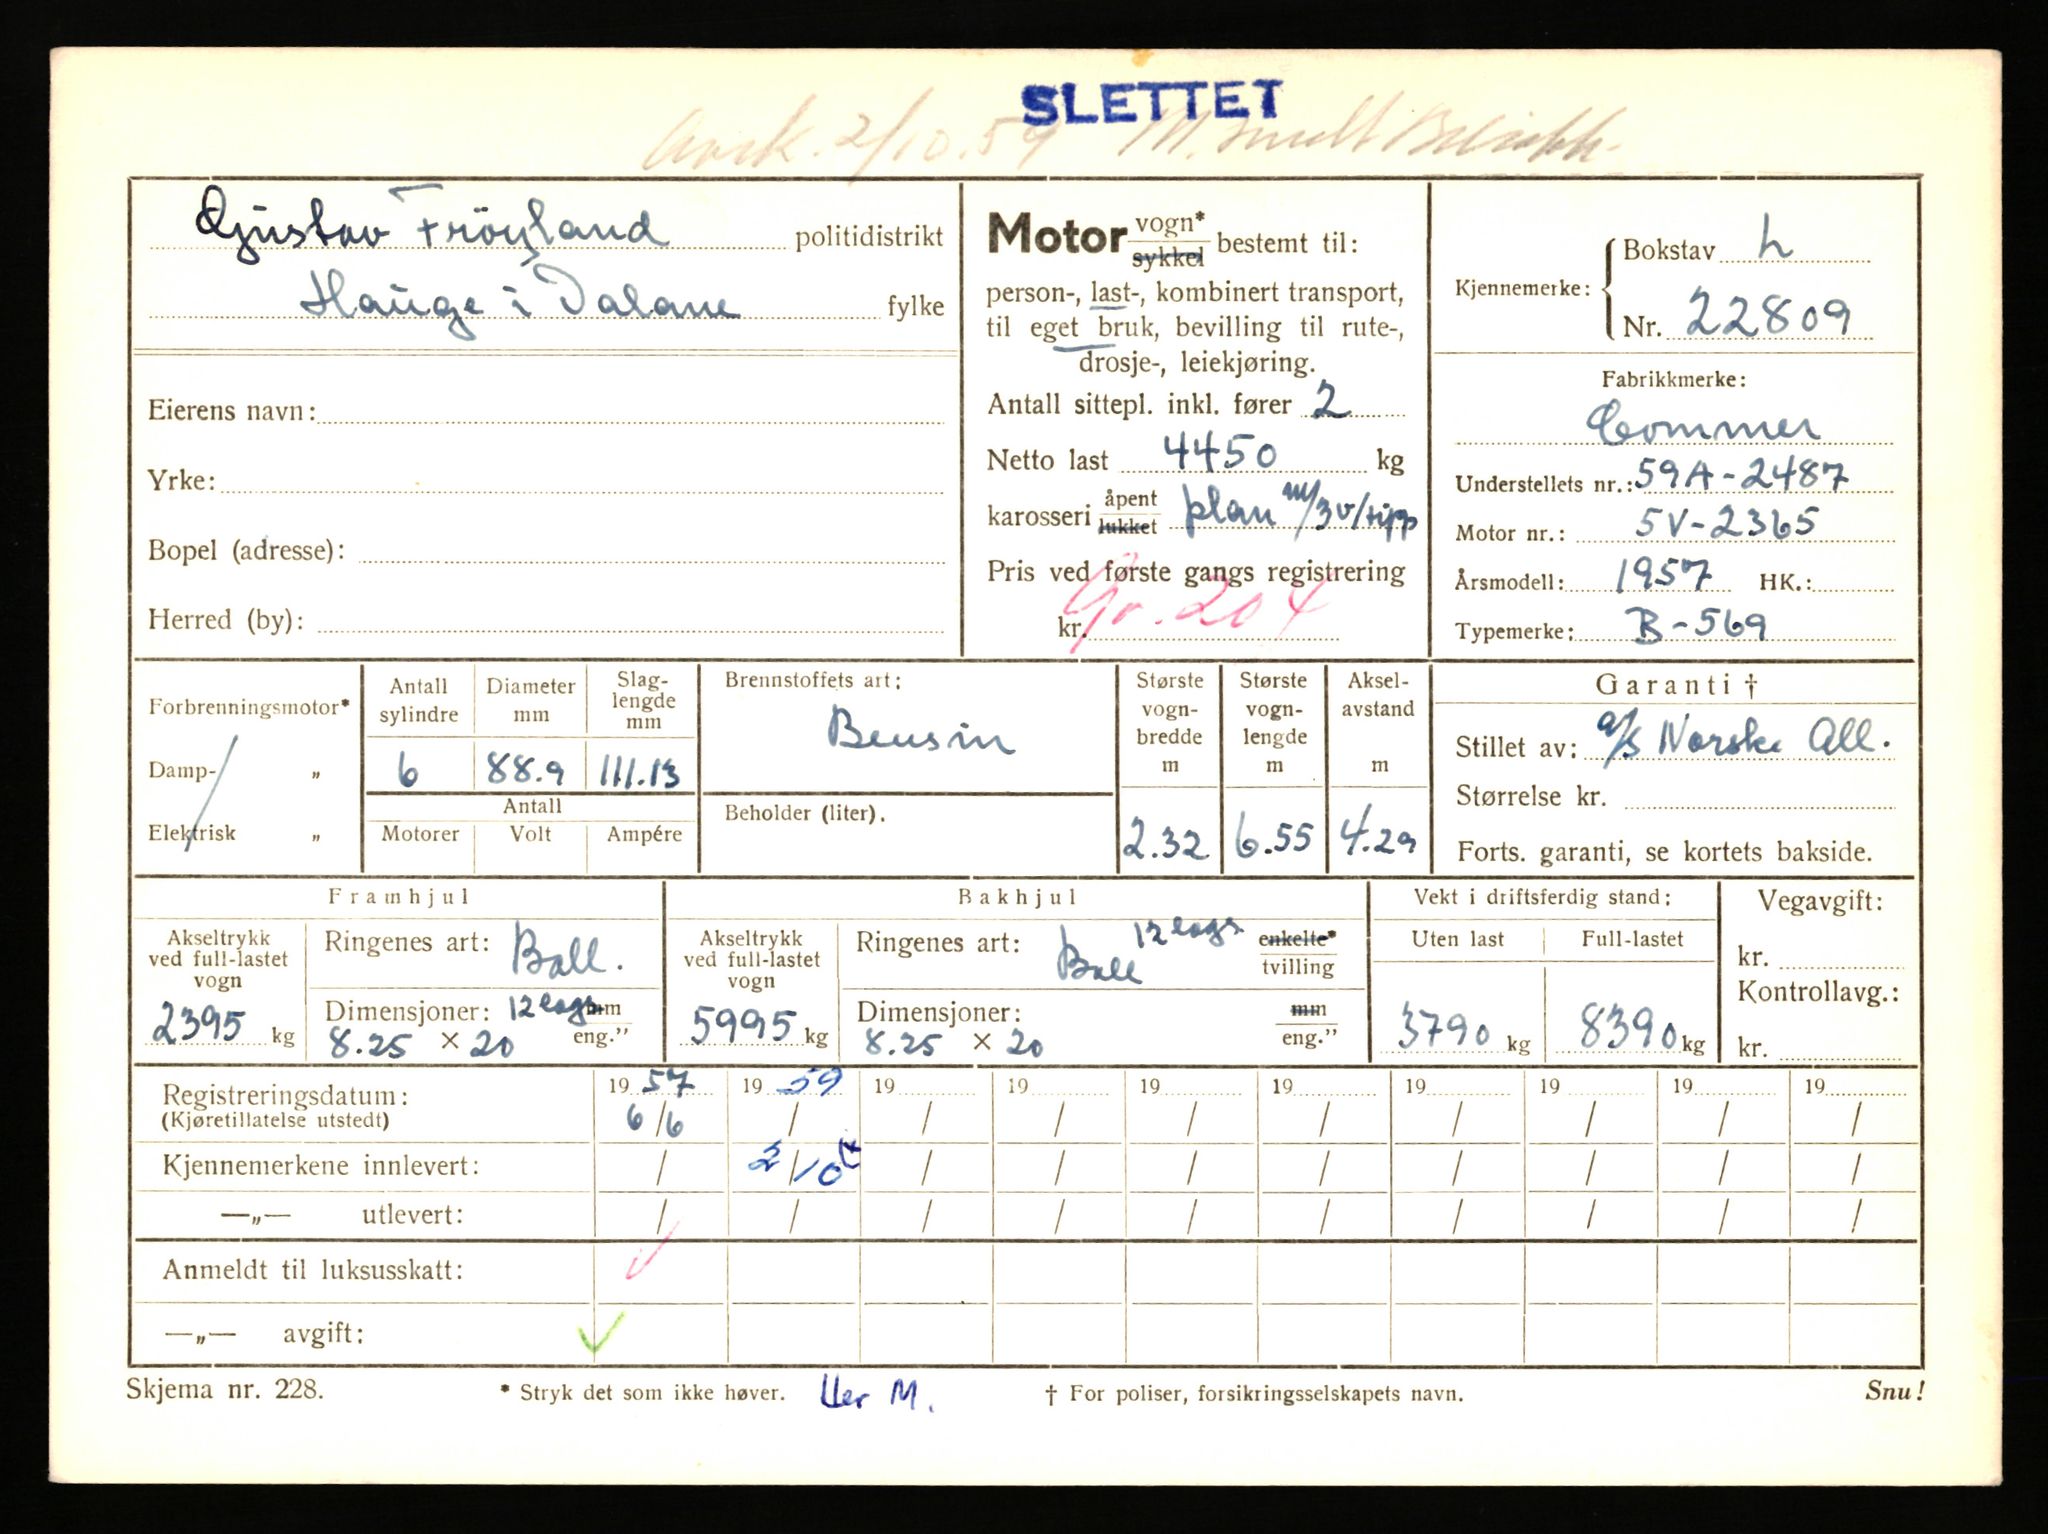 SLETTET
2/10.59 M.
Gustav Fröyland politidistrikt
Hauge i Dalane fylke
Eierens navn:
Yrke:
Bopel (adresse):
Herred (by):
Motor vogn* sykkel bestemt til:
person-, last-, kombinert transport,
til eget bruk, bevilling til rute-,
drosje-, leiekjøring.
Antall sittepl. inkl. fører 2
Netto last 4450 kg
karosseri åpent lukket plan m/3v/tipp
Pris ved første gangs registrering
kr. Gr. 204
Kjennemerke: Bokstav L
Nr. 22809
Fabrikkmerke:
Commer
Understellets nr.: 59A-2487
Motor nr.: 5V-2365
Årsmodell: 1957 HK.:
Typemerke: B-569
Forbrenningsmotor*
Damp- „
Elektrisk „
Antall sylindre 6
Diameter mm 88.9
Slag-lengde mm 111.13
Antall
Motorer Volt Ampére
Brennstoffets art:
Bensin
Beholder (liter).
Største vogn-bredde m 2.32
Største vogn-lengde m 6.55
Aksel-avstand m 4.29
Garanti †
Stillet av: a/s Norske All.
Størrelse kr.
Forts. garanti, se kortets bakside.
Framhjul
Akseltrykk ved full-lastet vogn 2395 kg
Ringenes art: Ball.
Dimensjoner: 12 lags mm
8.25 × 20 eng.”
Bakhjul
Akseltrykk ved full-lastet vogn 5995 kg
Ringenes art: Ball 12 lags enkelte* tvilling
Dimensjoner: mm
8.25 × 20 eng.”
Vekt i driftsferdig stand:
Uten last Full-lastet
3790 kg 8390 kg
Vegavgift:
kr.
Kontrollavg.:
kr.
Registreringsdatum: 19 57 19 59 19 19 19 19 19 19 19 19
(Kjøretillatelse utstedt) 6/6 / / / / / / / / /
Kjennemerkene innlevert: / 2/10 / / / / / / / /
—„— utlevert: / / / / / / / / / /
Anmeldt til luksusskatt:
—„— avgift:
Skjema nr. 228. * Stryk det som ikke høver. Ver M. † For poliser, forsikringsselskapets navn. Snu!